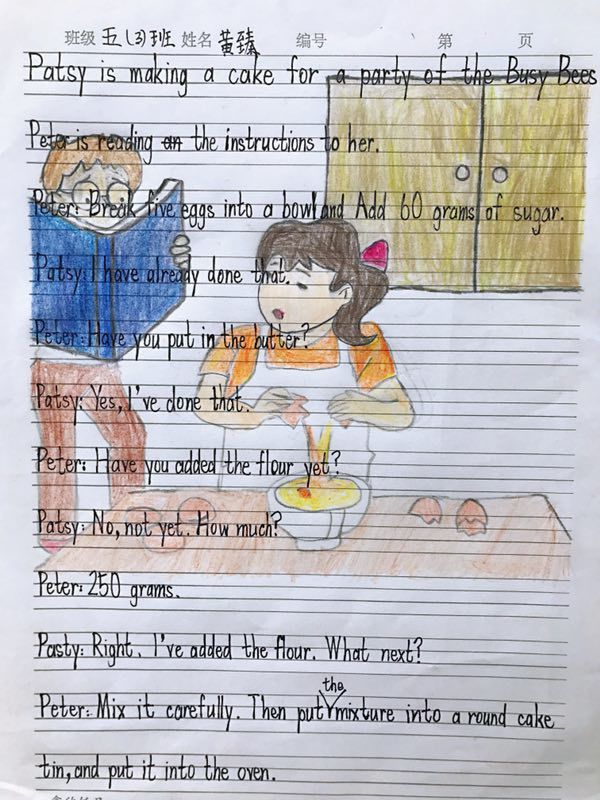 班级 五(3)班 姓名 黄臻 编号 第 页
Patsy is making a cake for a party of the Busy Bees
Peter is reading an the instructions to her.
Peter: Break five eggs into a bowl and Add 60 grams of sugar.
Patsy: I have already done that.
Peter: Have you put in the butter?
Patsy: Yes, I've done that.
Peter: Have you added the flour yet?
Patsy: No, not yet. How much?
Peter: 250 grams.
Pasty: Right. I've added the flour. What next?
Peter: Mix it carefully. Then put the mixture into a round cake
tin, and put it into the oven.